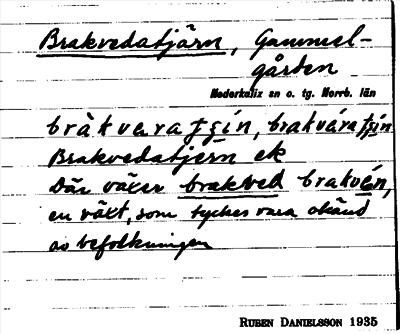 Brakvedatjärn, Gammel-
gården
Nederkalix sn o. tg. Norrb. län
Brakvedatjern ek
Där växer brakved
en växt, som tyckes vara okänd
av befolkningen
RUBEN DANIELSSON 1935